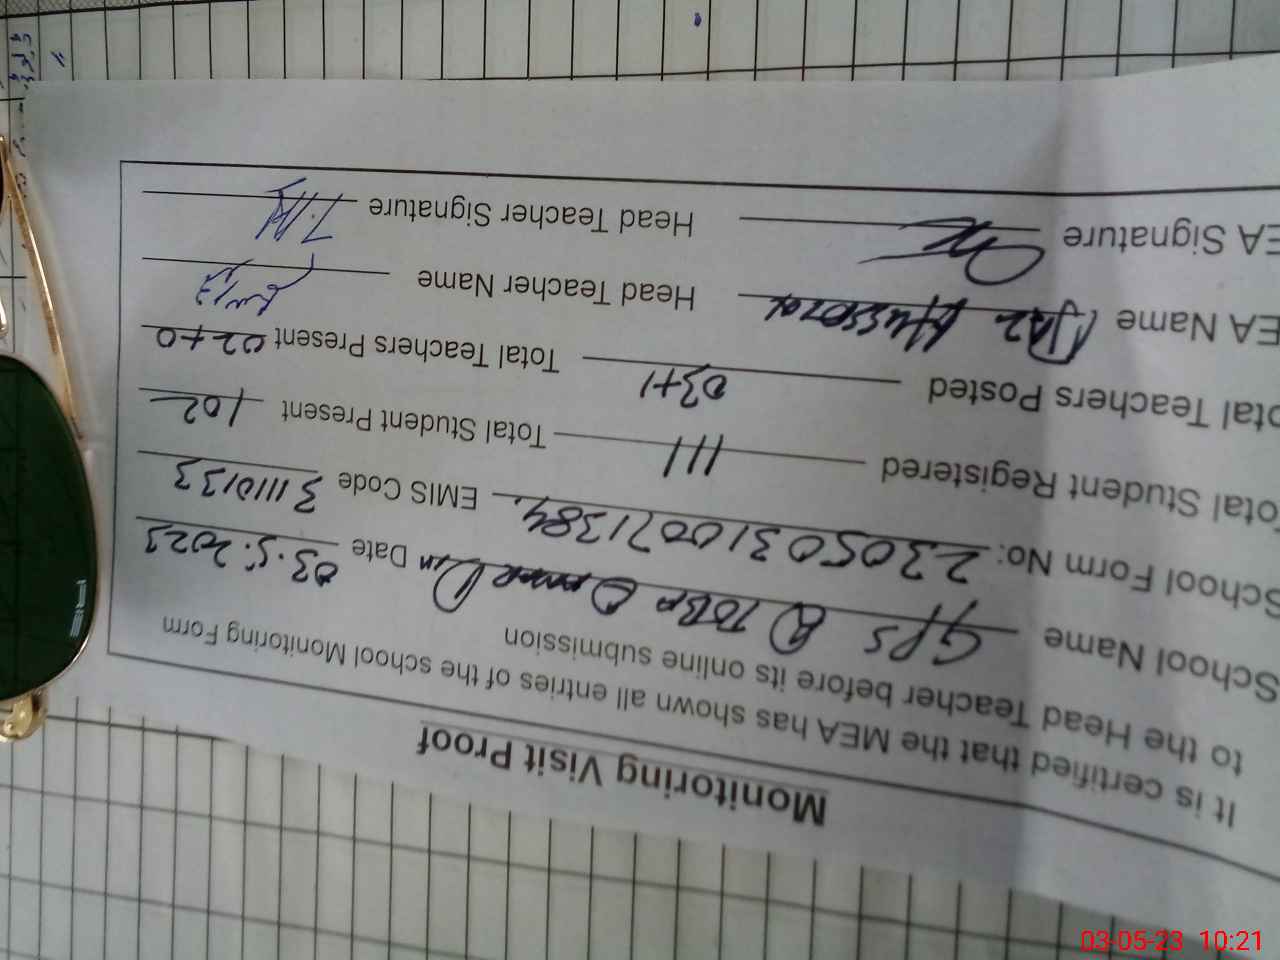 Monitoring Visit Proof
It is certified that the MEA has shown all entries of the school Monitoring Form
to the Head Teacher before its online submission
School Name GPS Date 03.5.2023
School Form No: 23050310071384 EMIS Code 31110133
Total Student Registered 111 Total Student Present 102
otal Teachers Posted 03+1 Total Teachers Present 02+0
EA Name Head Teacher Name
EA Signature Head Teacher Signature
03-05-23 10:21